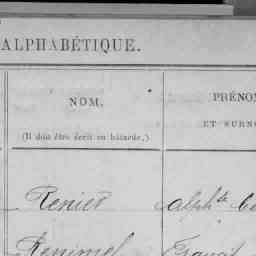 ALPHABÉTIQUE.
NOM. PRÉNO
(Il doit être écrit en bâtarde.) ET SURNO
Renier Alph.te
Renimel Franç